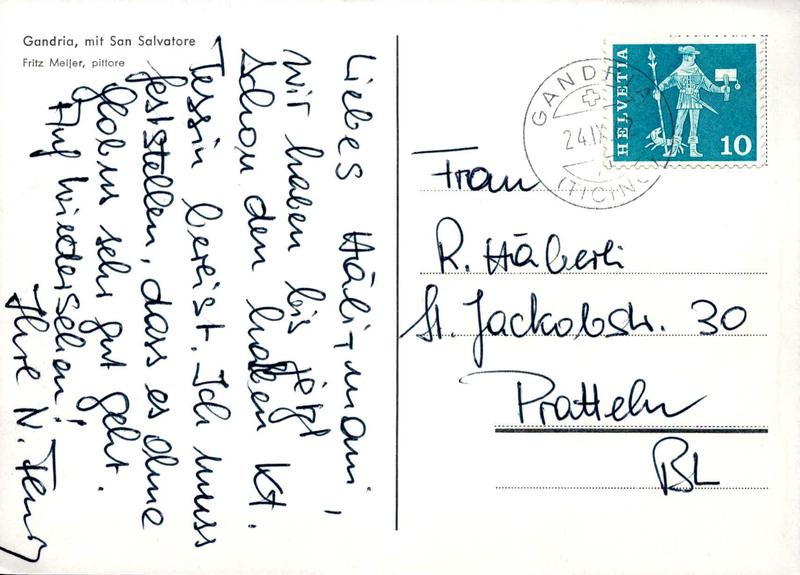 Gandria, mit San Salvatore
Fritz Meijer, pittore
Liebes Häli-mami,
Wir haben bis jetzt
schon den halben Kt.
Tessin bereist. Ich muss
feststellen, dass es ohne
Globus sehr gut geht.
Auf Wiedersehen!
Ihre N.
HELVETIA
10
GANDRIA
24.IX
(TICINO)
Frau
R. Häberli
St. Jackobstr. 30
Pratteln
BL